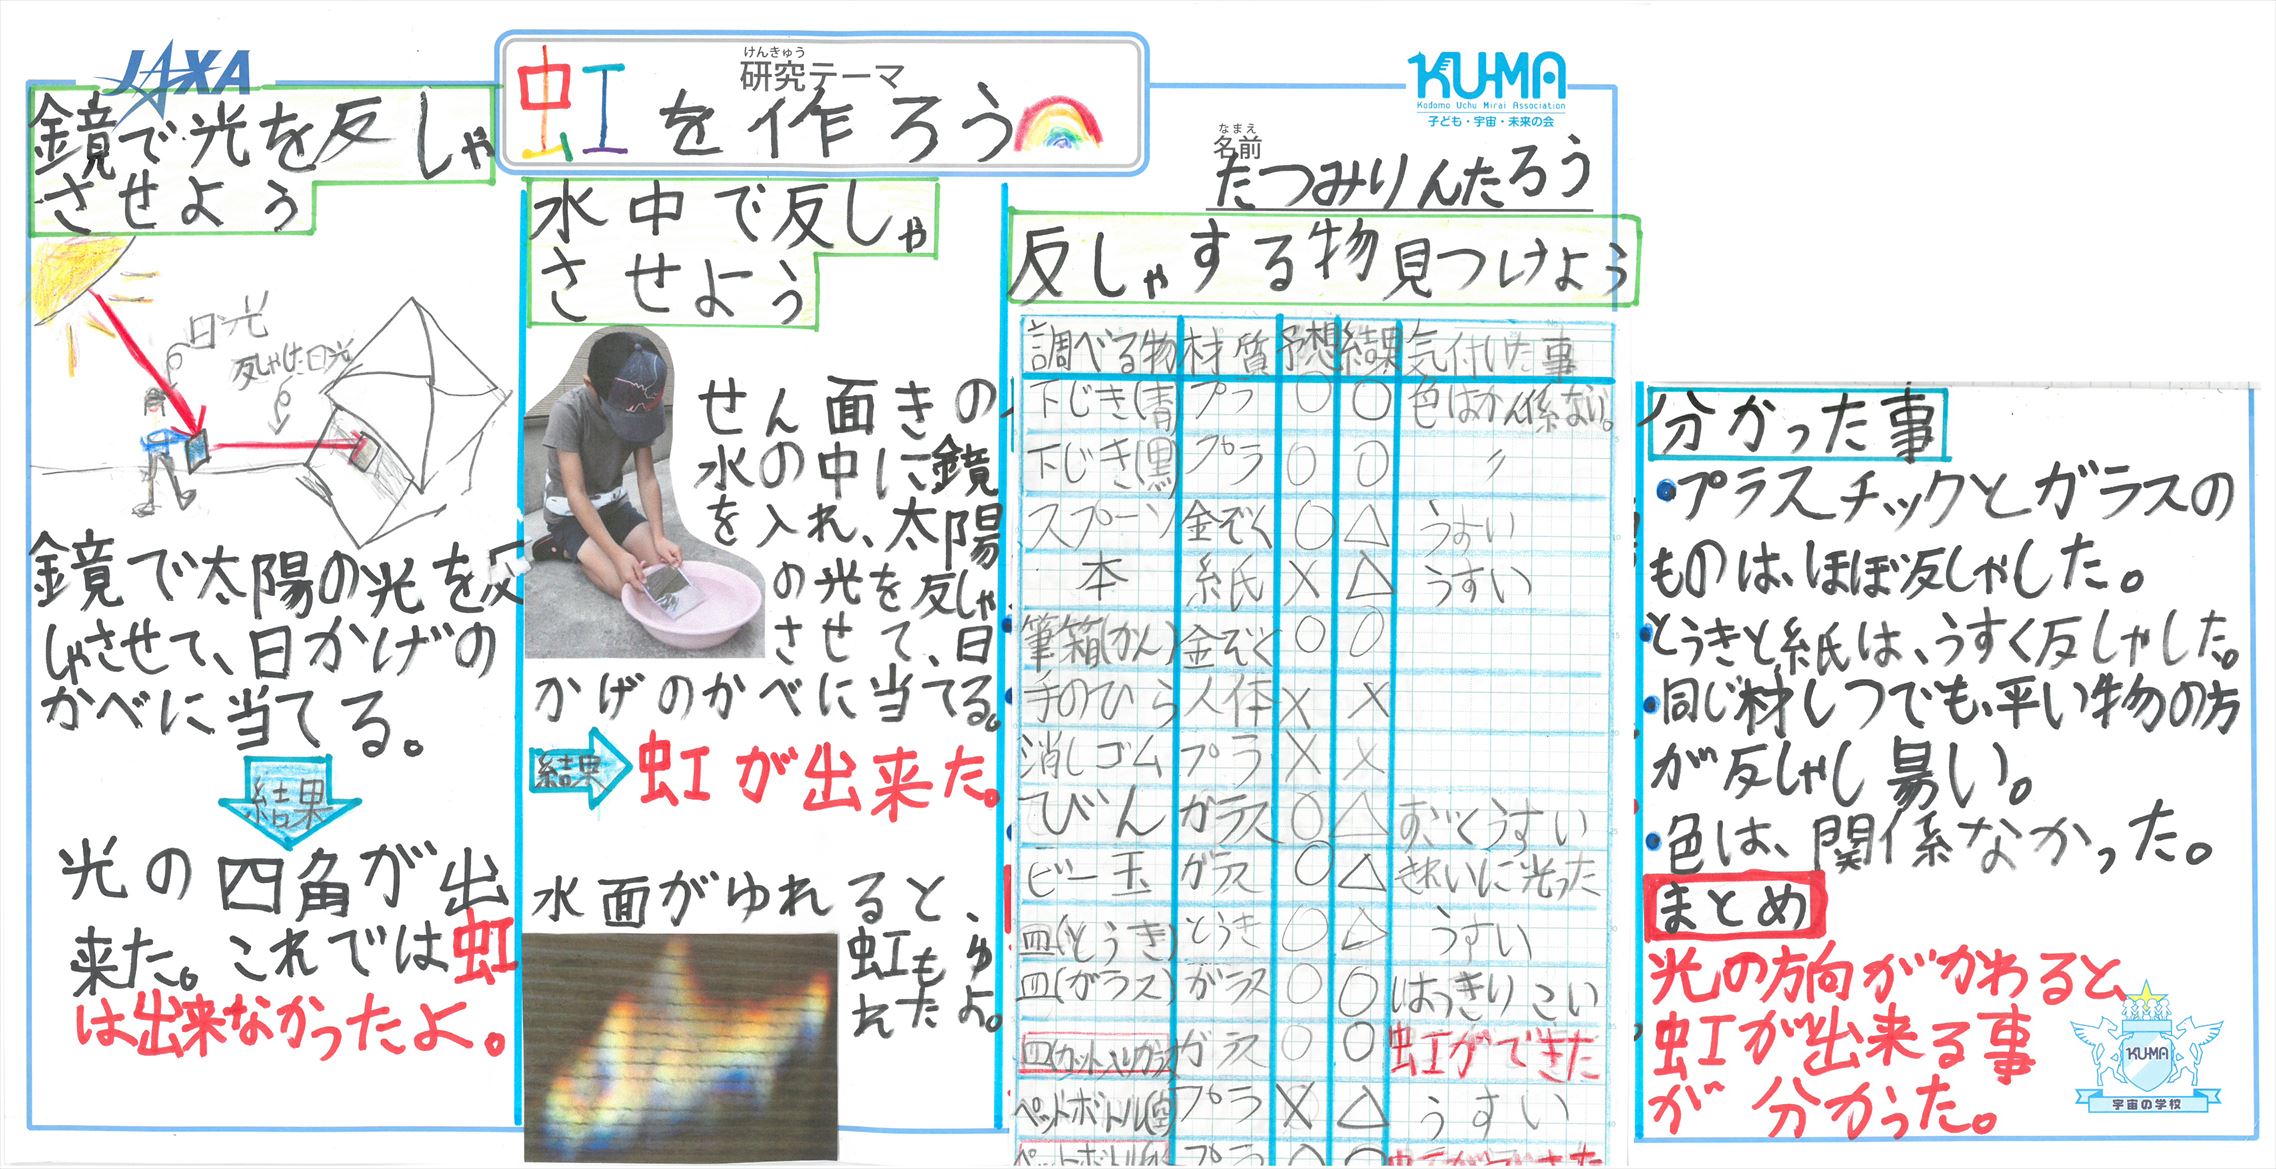 JAXA
けんきゅう
研究テーマ
虹を作ろう
KU-MA
Kodomo Uchu Mirai Association
子ども・宇宙・未来の会
なまえ
名前
たつみりんたろう
鏡で光を反しゃ
させよう
日光
反しゃした日光
鏡で太陽の光を反
しゃさせて、日かげの
かべに当てる。
結果
光の四角が出
来た。これでは虹
は出来なかったよ。
水中で反しゃ
させよう
せん面きの
水の中に鏡
を入れ、太陽
の光を反しゃ
させて、日
かげのかべに当てる。
結果
虹が出来た。
水面がゆれると、
虹もゆ
れたよ。
反しゃする物見つけよう
調べる物 材質 予想 結果 気付いた事
下じき(青) プラ ○ ○ 色はかん係ない。
下じき(黒) プラ ○ ○ 〃
スプーン 金ぞく ○ △ うすい
本 紙 × △ うすい
筆箱(かん) 金ぞく ○ ○
手のひら 人体 × ×
消しゴム プラ × ×
びん ガラス ○ △ すごくうすい
ビー玉 ガラス ○ △ きれいに光った
皿(とうき) とうき ○ △ うすい
皿(ガラス) ガラス ○ ○ はっきりこい
皿(カット入りガラス) ガラス ○ ○ 虹ができた
ペットボトル(空) プラ × △ うすい
ペットボトル(水 プラ ○ ○ 虹ができた
分かった事
・プラスチックとガラスの
ものは、ほぼ反しゃした。
・とうきと紙は、うすく反しゃした。
・同じ材しつでも、平い物の方
が反しゃし易い。
・色は、関係なかった。
まとめ
光の方向がかわると、
虹が出来る事
が分かった。
KU-MA
宇宙の学校